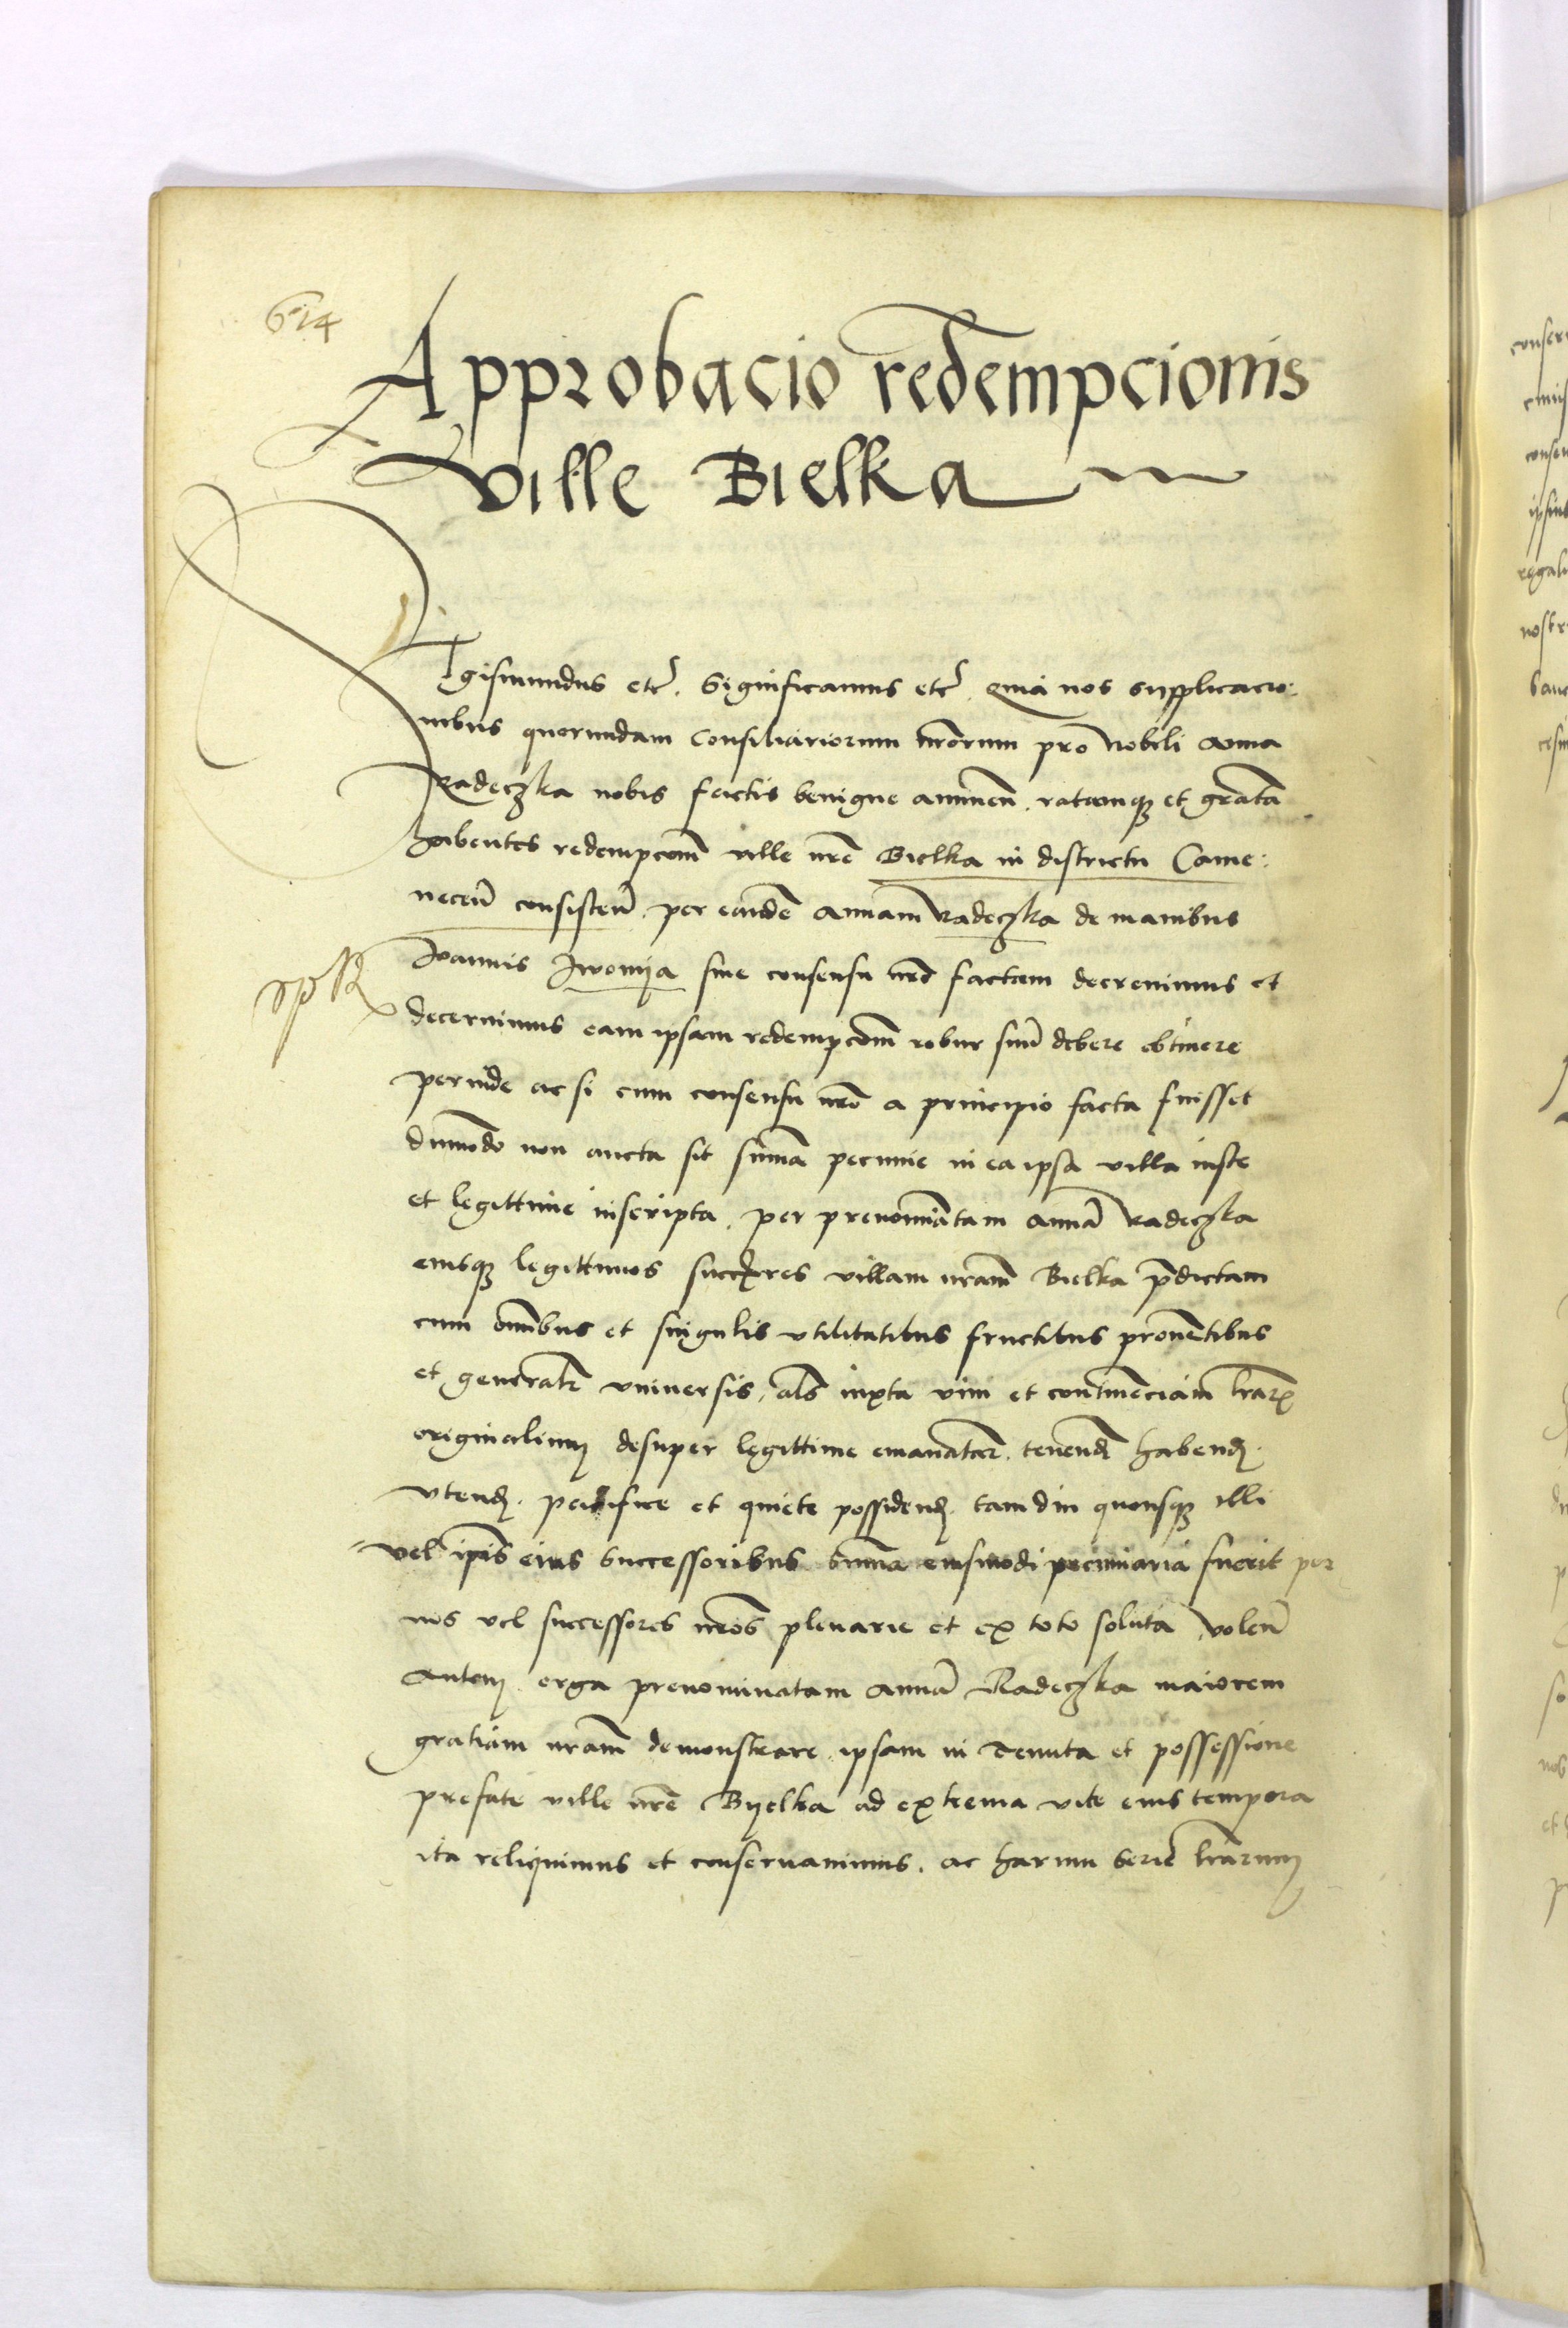 614
Approbacio redempcionis
ville Bielka
Sigismundus etc̃. Significamus etc̃. Quia nos supplicacio:
nibus quorundam Consiliariorum nrõrum pro Nobili Anna
Radeczka nobis factis benigne annuen̄. ratamq₃ et gratã
habentes redempcom̃ ville nrẽ Bielka in districtu Came:
necen̄ consisten̄. per eandẽ Annam Radeczka de manibus
Ioannis Iwonija sine consensu nrõ factam decrevimus et
decernimus eam ipsam redempcom̃ robur suũ debere obtinere
perinde ac si cum consensu nrõ a principio facta fuisset
dummodo non aucta sit sum̃a pecunie in ea ipsa villa iuste
et legittime inscripta. per prenomiãtam Annã Radeczka
eiusq₃ legittimos succ̃res villam nram̃ Bielka p̃dictam
cum om̃ibus et singulis vtilitatibus fructibus prouẽtibus
et generalr̃ vniuersis. als̃ iuxta vim et continẽciam lrar̃
originalium desuper legittime emanatar̃. tenend̃ habend̃.
vtend̃. pacifice et quiete possidend̃. tam diu quousq₃ illi
vel ip̃is eius Successoribus Sum̃a eiusmodi pecuniaria fuerit per
nos vel successores nrõs plenarie et ex toto soluta. Volen̄
Autem erga prenominatam Annã Radeczka maiorem
gratiam nram̃ demonstrare. ipsam in Tenuta et possessione
prefate ville nrẽ Byelka ad extrema vite eius tempora
ita reliquimus et conseruauimus. ac harum Seriẽ lrarum̃